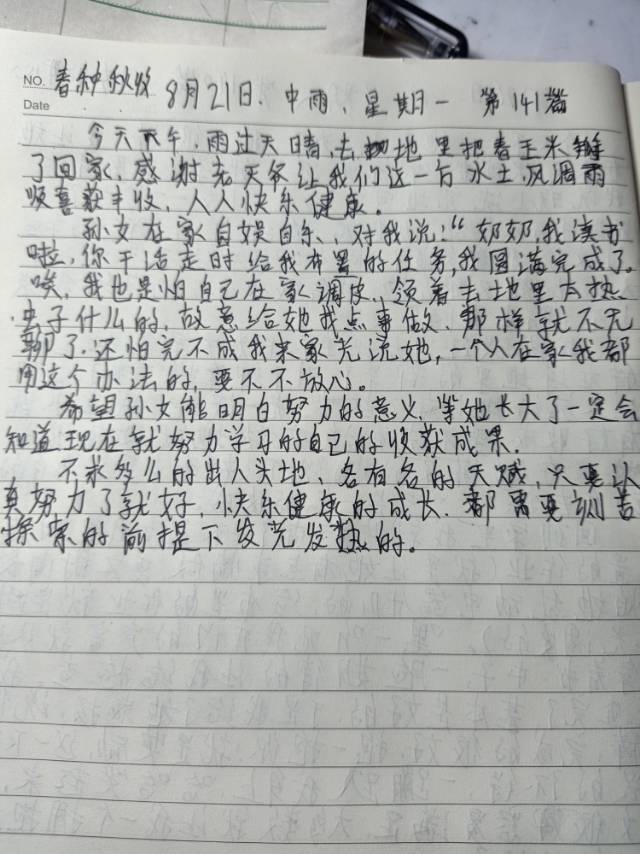 NO. 春种秋收 8月21日. 中雨. 星期一 第141篇
Date
今天下午.雨过天晴,去地里把春玉米掰
了回家.感谢老天爷让我们这一方水土,风调雨
顺喜获丰收,人人快乐健康。
孙女在家自娱自乐、对我说:“奶奶,我读书
啦,你干活走时给我布置的任务,我圆满完成了。
唉,我也是怕自己在家调皮.领着去地里太热.
虫子什么的,故意给她找点事做.那样就不无
聊了.还怕完不成我来家先说她,一个人在家我都
用这个办法的,要不不放心。
希望孙女能明白努力的意义.等她长大了一定会
知道现在就努力学习的自己的收获成果.
不求多么的出人头地、各有各的天赋,只要认
真努力了就好,快乐健康的成长.都需要
探索的前提下发光发热的。